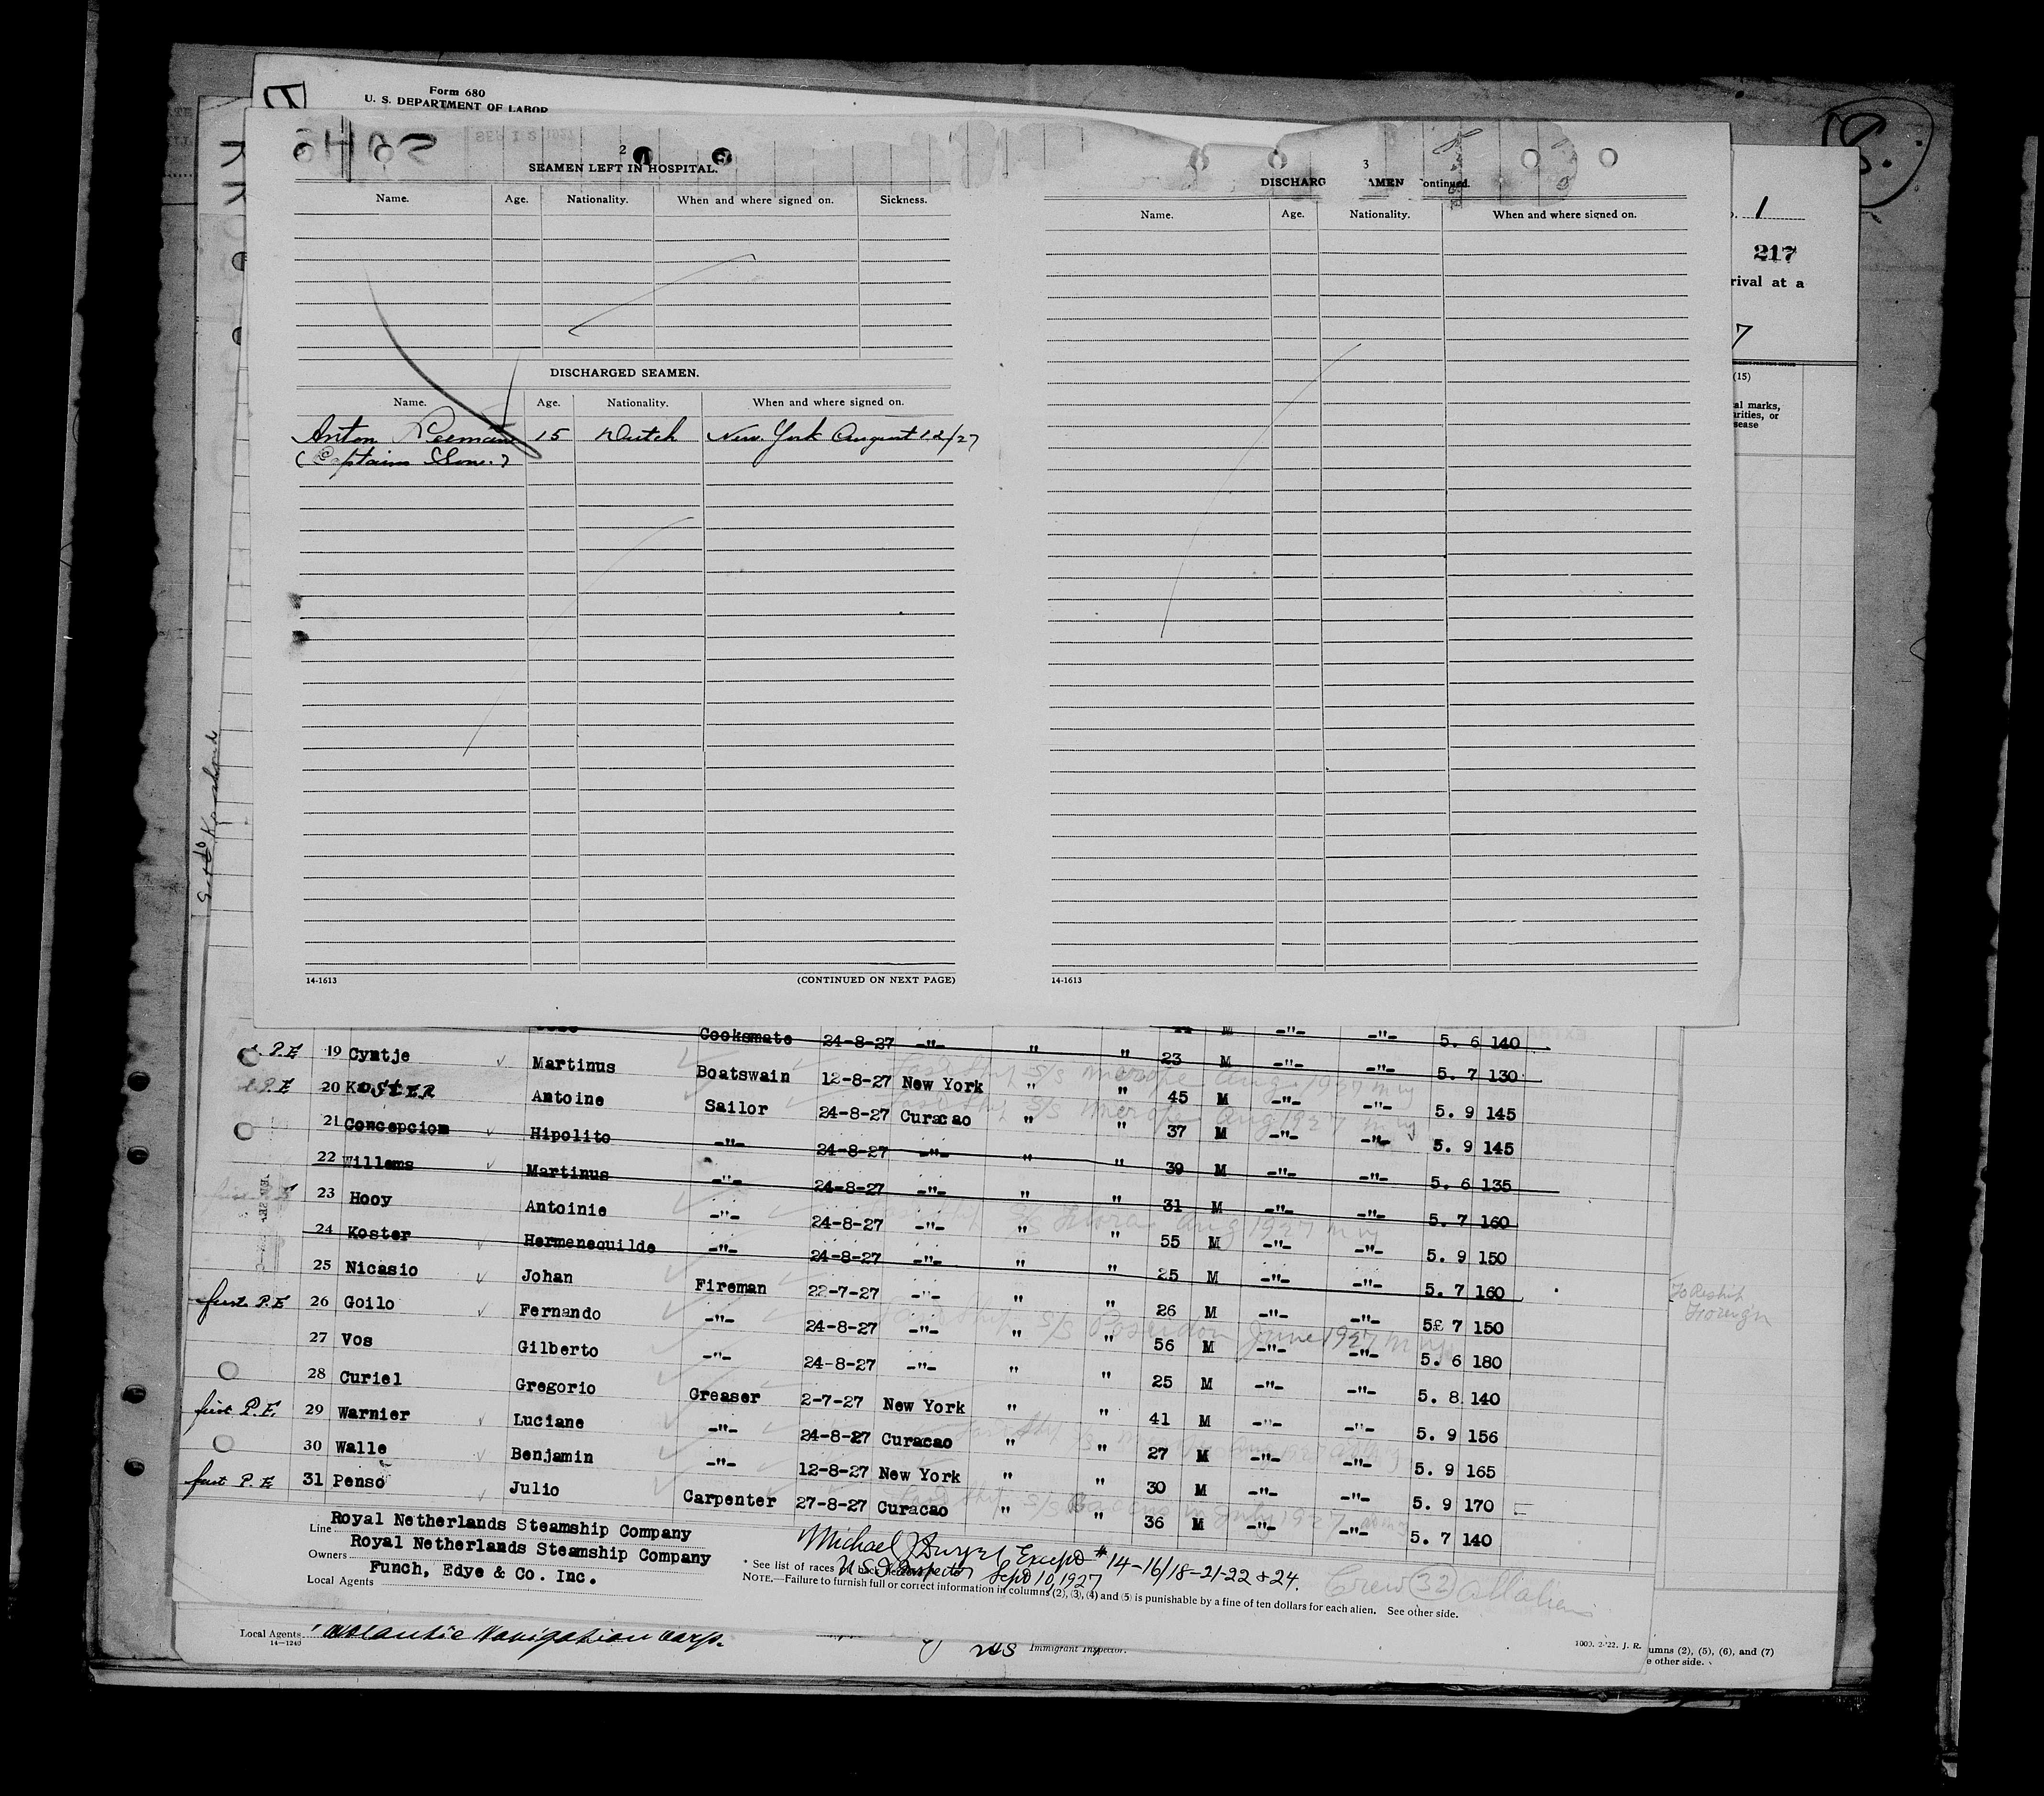 Form 680
U. S. DEPARTMENT OF LABOR
2
SEAMEN LEFT IN HOSPITAL.
Name. Age. Nationality. When and where signed on. Sickness.
DISCHARGED SEAMEN.
Name. Age. Nationality. When and where signed on.
Anton 15 Dutch New York August 12/27
(Captains Sone.)
14-1613 (CONTINUED ON NEXT PAGE)
3
DISCHARG AMEN ontinued.
Name. Age. Nationality. When and where signed on.
14-1613
1
217
rival at a
7
(15)
al marks,
arities, or
sease
Cooksmate 24-8-27 -"- " " M -"- -"- 5. 6 140
P.E 19 Cyntje Martinus Boatswain 12-8-27 New York " " 23 M -"- -"- 5. 7 130
P.E 20 KOSTER Antoine Sailor 24-8-27 Curacao " " 45 M -"- -"- 5. 9 145
21 Concepcion Hipolito -"- 24-8-27 -"- " " 37 M -"- -"- 5. 9 145
22 Willems Martinus -"- 24-8-27 -"- " " 39 M -"- -"- 5. 6 135
23 Hooy Antoinie -"- 24-8-27 -"- " " 31 M -"- -"- 5. 7 160
24 Koster Hermenequilde -"- 24-8-27 -"- " " 55 M -"- -"- 5. 9 150
25 Nicasio Johan Fireman 22-7-27 -"- " " 25 M -"- -"- 5. 7 160
first P.E 26 Goilo Fernando -"- 24-8-27 -"- " " 26 M -"- -"- 5£ 7 150
27 Vos Gilberto -"- 24-8-27 -"- " " 56 M -"- -"- 5. 6 180
28 Curiel Gregorio Greaser 2-7-27 New York " " 25 M -"- -"- 5. 8 140
first P.E. 29 Warnier Luciane -"- 24-8-27 Curacao " " 41 M -"- -"- 5. 9 156
30 Walle Benjamin -"- 12-8-27 New York " " 27 M -"- -"- 5. 9 165
first P.E 31 Penso Julio Carpenter 27-8-27 Curacao " " 30 M -"- -"- 5. 9 170
36 M -"- -"- 5. 7 140
Line Royal Netherlands Steamship Company
Owners Royal Netherlands Steamship Company
Local Agents Funch, Edye & Co. Inc.
Michael Except # 14-16/18-21-22 & 24.
U S Inspector Sept 10, 1927
* See list of races
NOTE.—Failure to furnish full or correct information in columns (2), (3), (4) and (5) is punishable by a fine of ten dollars for each alien. See other side.
Crew (32) all aliens
To Reship
Foreign
Local Agents Atlantic Navigation Corp.
14—1240
Immigrant Inspector.
umns (2), (5), (6), and (7)
e other side.